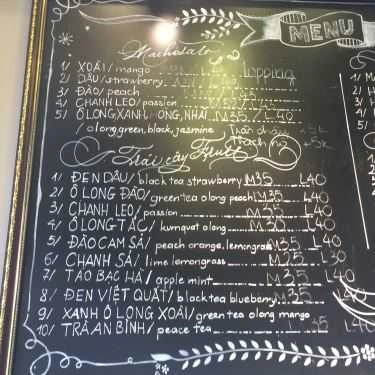 MENU
Machiato
1/ XOÀI / mango
2/ DÂU / strawberry topping
3/ ĐÀO / peach
4/ CHANH LEO / passion
5/ Ô LONG, XANH, NHÀI M35 / L40
/ olong, green, black, jasmine / Trân châu +5k
+5k
Trái cây / Fruit
1/ ĐEN DÂU / black tea strawberry M35 L40
2/ Ô LONG ĐÀO / green tea olong peach M35 L40
3/ CHANH LEO / passion M35 L40
4/ Ô LONG TẮC / kumquat olong M30 L40
5/ ĐÀO CAM SẢ / peach orange, lemongrass M35 L40
6/ CHANH SẢ / lime lemongrass M35 L40
7/ TÁO BẠC HÀ / apple mint M35 L40
8/ ĐEN VIỆT QUẤT / black tea blueberry M35 L40
9/ XANH Ô LONG XOÀI / green tea olong mango
10/ TRÀ AN BÌNH / peace tea M35 L40